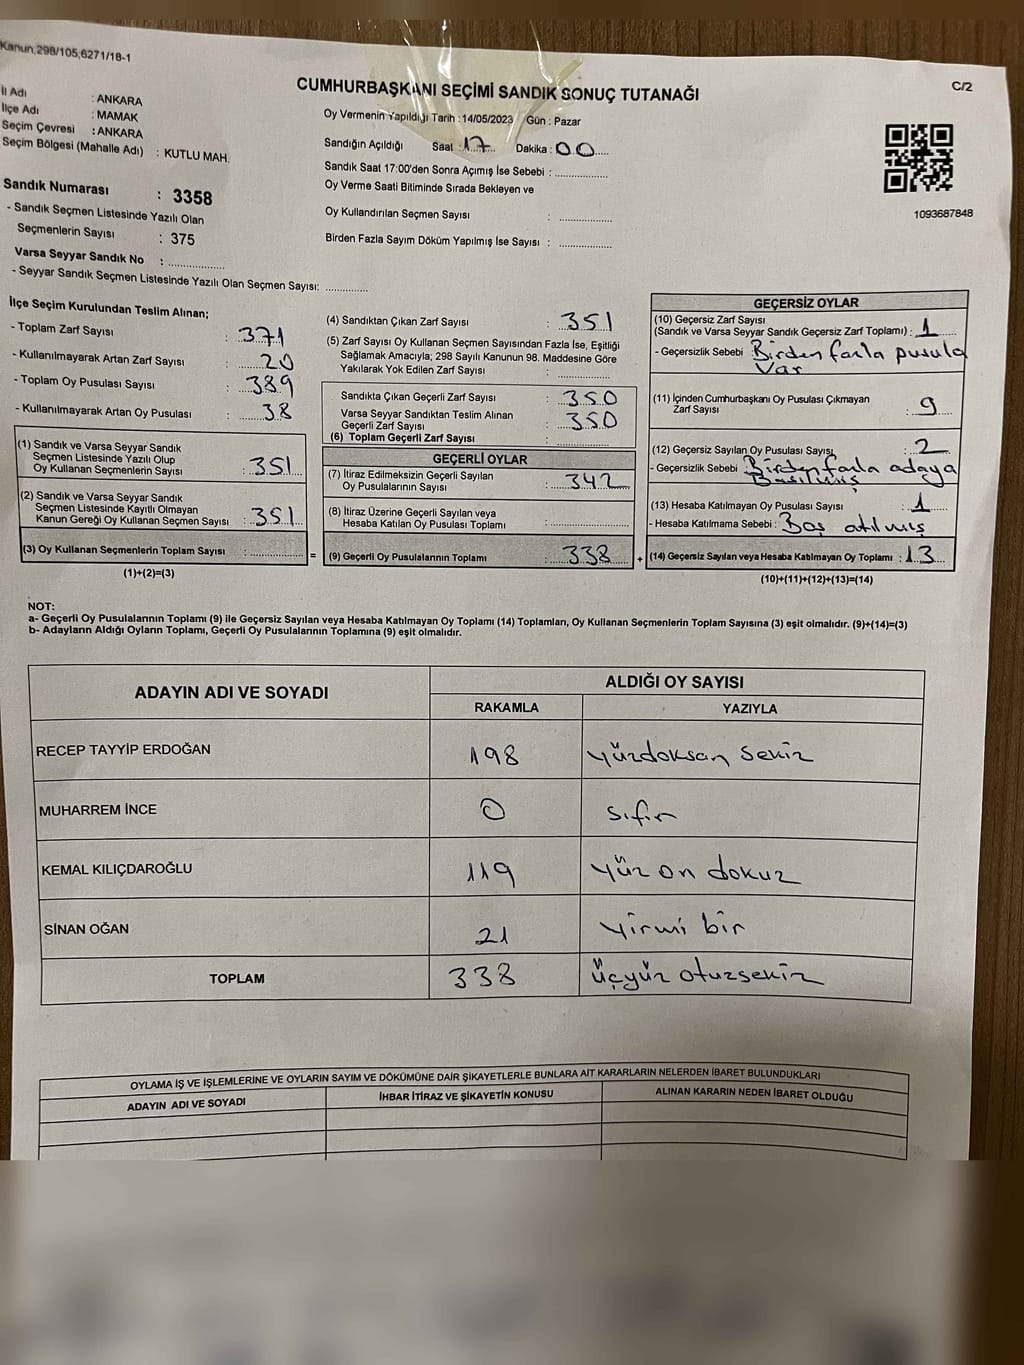 Kanun,298/105,6271/18-1
C/2
CUMHURBAŞKANI SEÇİMİ SANDIK SONUÇ TUTANAĞI
İl Adı : ANKARA
İlçe Adı : MAMAK
Seçim Çevresi : ANKARA
Seçim Bölgesi (Mahalle Adı) : KUTLU MAH.
Sandık Numarası : 3358
- Sandık Seçmen Listesinde Yazılı Olan
Seçmenlerin Sayısı : 375
Varsa Seyyar Sandık No :
- Seyyar Sandık Seçmen Listesinde Yazılı Olan Seçmen Sayısı:
Oy Vermenin Yapıldığı Tarih :14/05/2023 Gün : Pazar
Sandığın Açıldığı Saat : 17 Dakika : 00
Sandık Saat 17:00'den Sonra Açımış İse Sebebi :
Oy Verme Saati Bitiminde Sırada Bekleyen ve
Oy Kullandırılan Seçmen Sayısı :
Birden Fazla Sayım Döküm Yapılmış İse Sayısı :
1093687848
İlçe Seçim Kurulundan Teslim Alınan;
- Toplam Zarf Sayısı : 371
- Kullanılmayarak Artan Zarf Sayısı : 20
- Toplam Oy Pusulası Sayısı : 389
- Kullanılmayarak Artan Oy Pusulası : 38
(1) Sandık ve Varsa Seyyar Sandık
Seçmen Listesinde Yazılı Olup
Oy Kullanan Seçmenlerin Sayısı : 351
(2) Sandık ve Varsa Seyyar Sandık
Seçmen Listesinde Kayıtlı Olmayan
Kanun Gereği Oy Kullanan Seçmen Sayısı : 351
(3) Oy Kullanan Seçmenlerin Toplam Sayısı :
(1)+(2)=(3)
(4) Sandıktan Çıkan Zarf Sayısı : 351
(5) Zarf Sayısı Oy Kullanan Seçmen Sayısından Fazla İse, Eşitliği
Sağlamak Amacıyla; 298 Sayılı Kanunun 98. Maddesine Göre
Yakılarak Yok Edilen Zarf Sayısı :
Sandıkta Çıkan Geçerli Zarf Sayısı : 350
Varsa Seyyar Sandıktan Teslim Alınan
Geçerli Zarf Sayısı : 350
(6) Toplam Geçerli Zarf Sayısı :
GEÇERLİ OYLAR
(7) İtiraz Edilmeksizin Geçerli Sayılan
Oy Pusulalarının Sayısı : 342
(8) İtiraz Üzerine Geçerli Sayılan veya
Hesaba Katılan Oy Pusulası Toplamı :
= (9) Geçerli Oy Pusulalarının Toplamı : 338 +
GEÇERSİZ OYLAR
(10) Geçersiz Zarf Sayısı
(Sandık ve Varsa Seyyar Sandık Geçersiz Zarf Toplamı) : 1
- Geçersizlik Sebebi : Birden fazla pusula
var
(11) İçinden Cumhurbaşkanı Oy Pusulası Çıkmayan
Zarf Sayısı : 9
(12) Geçersiz Sayılan Oy Pusulası Sayısı : 2
- Geçersizlik Sebebi : Birden fazla adaya
Basılmış
(13) Hesaba Katılmayan Oy Pusulası Sayısı : 1
- Hesaba Katılmama Sebebi : Boş atılmış
(14) Geçersiz Sayılan veya Hesaba Katılmayan Oy Toplamı : 13
(10)+(11)+(12)+(13)=(14)
NOT:
a- Geçerli Oy Pusulalarının Toplamı (9) ile Geçersiz Sayılan veya Hesaba Katılmayan Oy Toplamı (14) Toplamları, Oy Kullanan Seçmenlerin Toplam Sayısına (3) eşit olmalıdır. (9)+(14)=(3)
b- Adayların Aldığı Oyların Toplamı, Geçerli Oy Pusulalarının Toplamına (9) eşit olmalıdır.
ADAYIN ADI VE SOYADI
ALDIĞI OY SAYISI
RAKAMLA YAZIYLA
RECEP TAYYİP ERDOĞAN 198 Yüzdoksan sekiz
MUHARREM İNCE 0 Sıfır
KEMAL KILIÇDAROĞLU 119 Yüz on dokuz
SİNAN OĞAN 21 Yirmi bir
TOPLAM 338 Üçyüz otuzsekiz
OYLAMA İŞ VE İŞLEMLERİNE VE OYLARIN SAYIM VE DÖKÜMÜNE DAİR ŞİKAYETLERLE BUNLARA AİT KARARLARIN NELERDEN İBARET BULUNDUKLARI
ADAYIN ADI VE SOYADI İHBAR İTİRAZ VE ŞİKAYETİN KONUSU ALINAN KARARIN NEDEN İBARET OLDUĞU